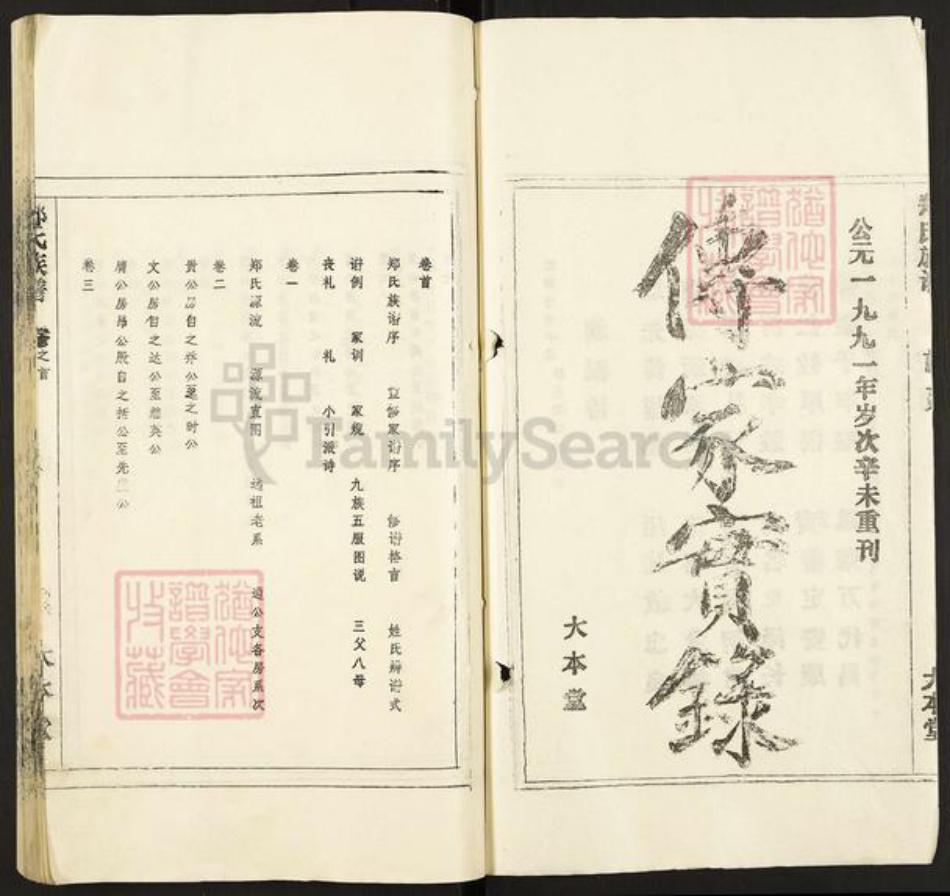 公元一九九一年岁次辛未重刊
傳家寶錄
大本堂
大本堂
卷首
郑氏族谱序 谱序 修谱格言 姓氏辨谱式
谱例 家训 家规 九族五服图说 三父八母
丧礼 礼 小引派诗
卷一
郑氏源流 源流直图 远祖老系 公支各房系次
卷二
贵公房自之乔公至之时公
文公房自之达公至继英公
房公房自之括公至先公
卷三
氏族譜 卷之首
大本堂
猶他家譜學會收藏
猶他家譜學會收藏
FamilySearch